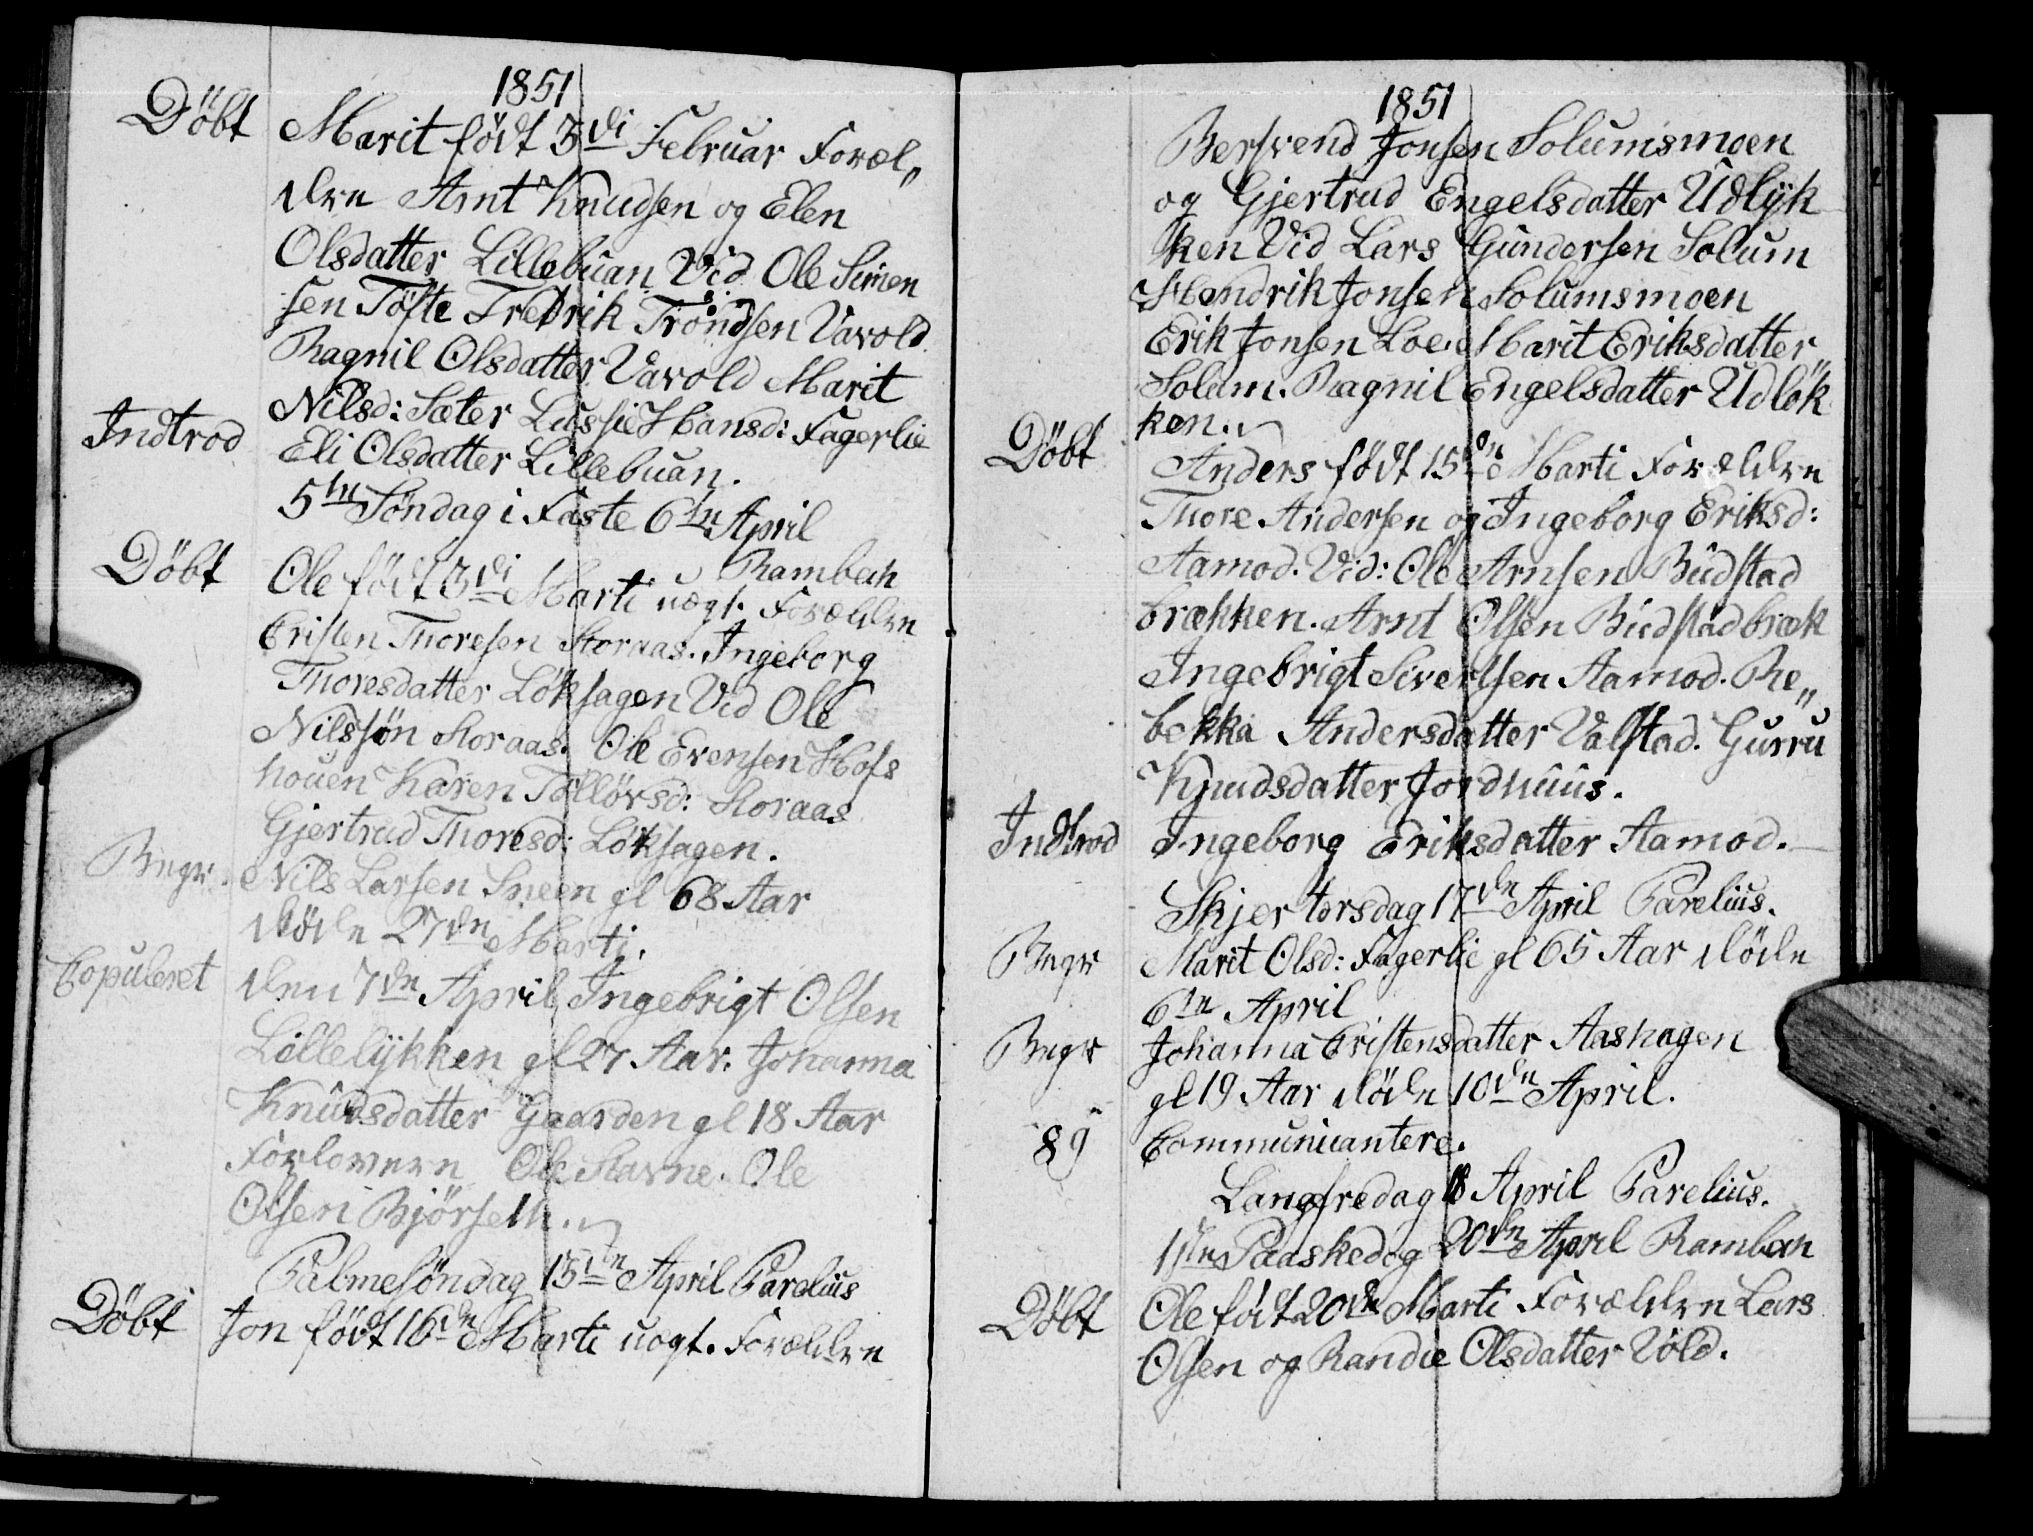 1851
Döbt Marit födt 3di Februar Foræl„
dre Arnt Knudsen og Elen
Olsdatter Lillebuan Vid Ole Simen
sen Töfte Fredrik Tröndsen Vavold
Ragnil Olsdatter Vavold Marit
Nilsd: Sæter Lussie Hansd: Fagerlie
Indtrod Eli Olsdatter Lillebuan.
5te Söndag i Faste 6te April
Rambech
Döbt Ole födt 3di Marti uægt. Forældre
Cristen Thoresen Storaas. Ingeborg
Thoresdatter Löksagen Vid Ole
Nilssön Storaas. Ole Evensen Hofs
houen Karen Tollövsd: Storaas
Gjertrud Thoresd: Löksagen.
Begr. Nils Larsen Sneen gl 68 Aar
döde 27de Marti.
Copuleret den 7de April Ingebrigt Olsen
Lillelykken gl 27 Aar. Johanna
Knudsdatter Gaarden gl 18 Aar
Forlovere Ole Stavne. Ole
Olsen Björseth.
Palmesöndag 13de April Parelius
Döbt Jon födt 16de Marti uægt. Forældre
1851
Bersvend Jonsen Solumsmoen
og Gjertrud Engelsdatter Udlyk
ken Vid Lars Gundersen Solum
Hendrik Jonsen Solumsmoen
Erik Jonsen Loe. Marit Eriksdatter
Solum. Ragnil Engelsdatter Udlök
ken.
Döbt Anders födt 15de Marti Forældre
Thore Andersen og Ingeborg Eriksd:
Aamod. Vid: Ole Arnsen Budstad
brækken. Arnt Olsen Budstadbræk
Ingebrigt Sivertsen Aamod. Re„
bekka Andersdatter Valstad. Gurru
Knudsdatter Jordhuus.
Indtrod Ingeborg Eriksdatter Aamod.
Skjertorsdag 17de April Parelius.
Begr Marit Olsd: Fagerlie gl 65 Aar döde
6te April
Begr Johanna Cristensdatter Aashagen
gl 19 Aar döde 10de April.
89 Communicantere.
Langfredag 18 April Parelius.
1ste Paaskedag 20de April Rambech
Döbt Ole födt 20de Marti Forældre Lars
Olsen og Randie Olsdatter Vold.